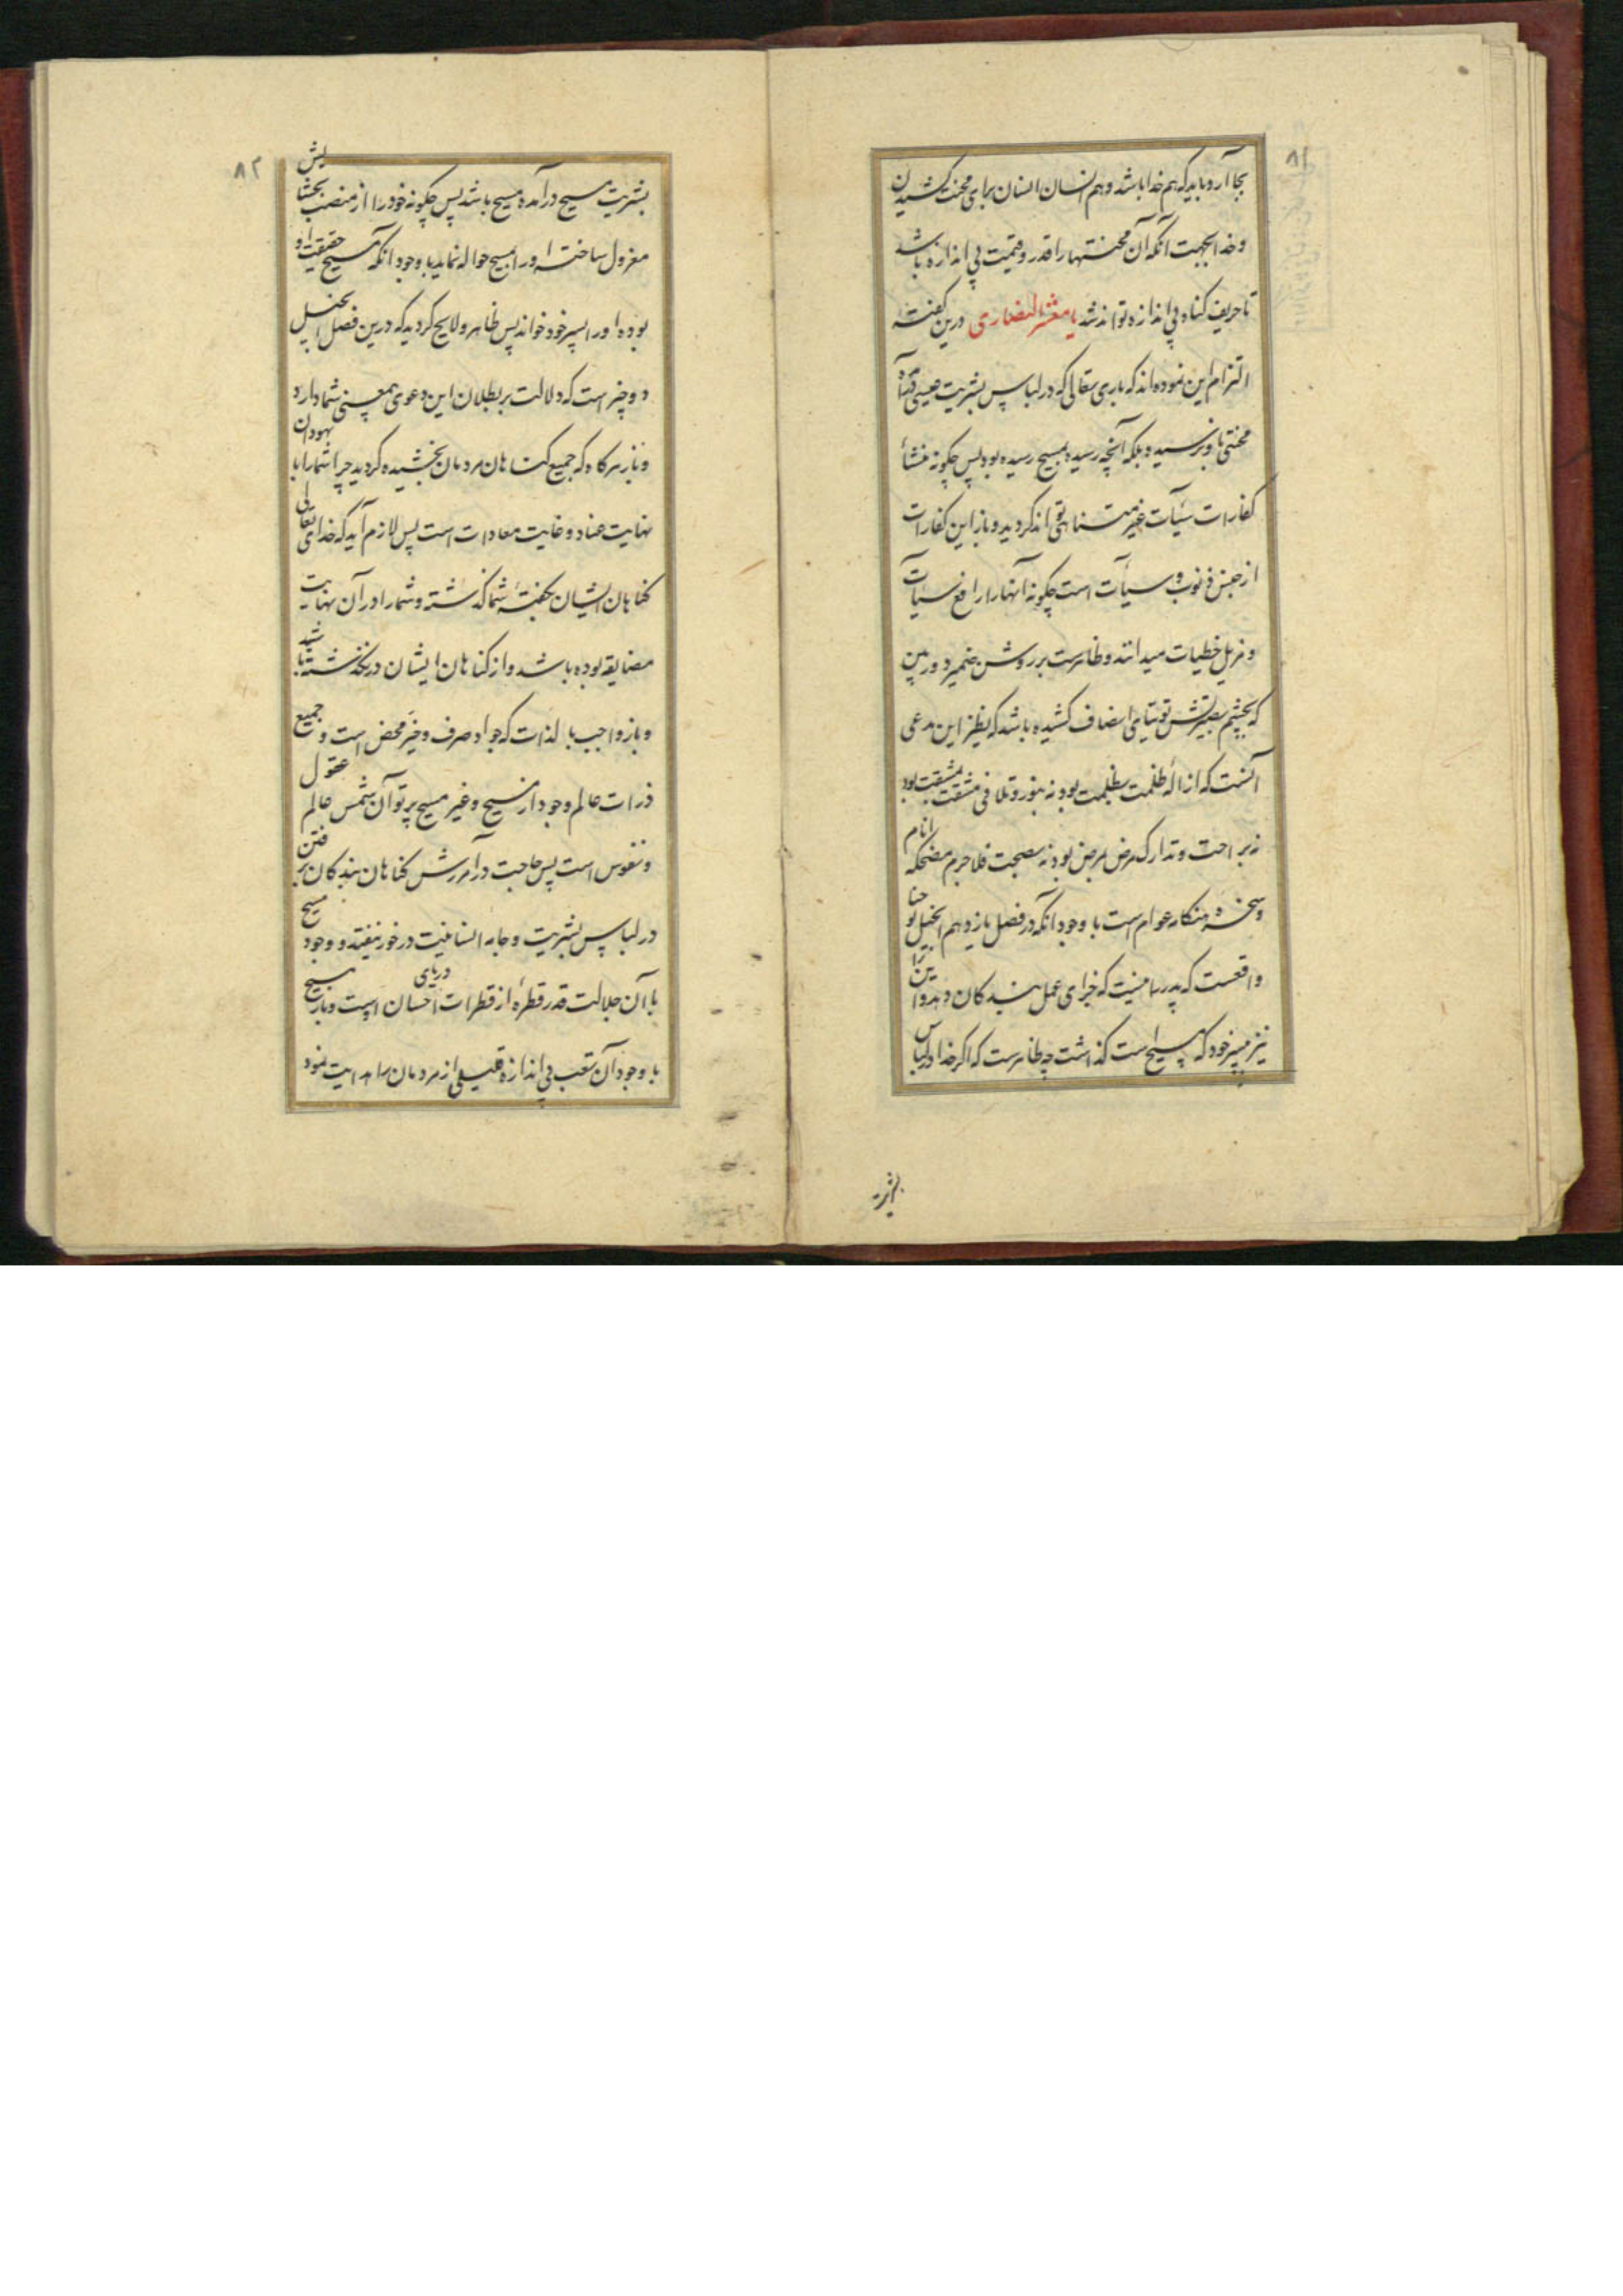 ٨١
بجا آرد و باید که هم خدا باشد و هم انسان انسان برای محنت کشیدن
و خدا بجهت آنکه آن محنتها را قدر و قیمت بی اندازه باشد
تا حریف کناه بی اندازه تواند شد یا معشر النصاری درین کفته
التزام این نموده‌اند که باری تعالی که در لباس بشریت عیسی
محنتی باو نرسیده بلکه آنچه رسیده بمسیح رسیده بود پس چکونه منشأ
کفارات سیّآت غیر متناهی تواند کردید و باز این کفارات
از جنس ذنوب و سیأت است چکونه آنها را رافع سیآت
و مزیل خطیات میدانند و ظاهرست بر روشن ضمیر دوربین
که بچشم بصیرتش توتیای انصاف کشیده باشد که نظیر این مدعی
آنست که ازالهٔ ظلمت بظلمت بود نه بنور و تلافی مشقت بمشقت بود
نه براحت و تدارک مرض بمرض بود نه بصحت فلاجرم مضحکه انام
و سخرهٔ عوام است با وجود آنکه در فصل یازدهم انجیل یوحنا
واقعست که پدر من نیست که جزای عمل بندکان دهد و این را
نیز به پسر خود که مسیح است کذاشت چه ظاهرست که اکر خدا در لباس
بشریت
٨٢
بشریت مسیح درآمده مسیح باشد پس چکونه خود را از منصب بخشایش
معزول ساخته او را بمسیح حواله نماید با وجود آنکه مسیح حقیقت او
بوده او را پسر خود خواند پس ظاهر و لایح کردید که درین فصل انجیل
دو چیز است که دلالت بر بطلان این دعوی بیمعنی شما دارد
و باز هرکاه که جمیع کناهان مردمان بخشیده کردید چرا شما را با یهودان
نهایت عناد و غایت معادات است پس لازم آید که خدای تعالی
کناهان ایشان بکفتهٔ شما کذشته و شما را در آن نهایت
مضایقه بوده باشد و از کناهان ایشان درنکذشته باشید
و باز واجب بالذات که جواد صرف و خیر محض است و جمیع
ذرات عالم وجود از مسیح و غیر مسیح پرتو آن شمس عالم عقول
و نفوس است پس حاجت در آمرزش کناهان بندکان برفتن
در لباس بشریت و جامه انسانیت در خور نیفتد و وجود مسیح
با آن جلالت قدر قطرهٔ از قطرات دریای احسان اوست و باز مسیح
با وجود آن تعب بی اندازه قلیلی از مردمان را هدایت نمود